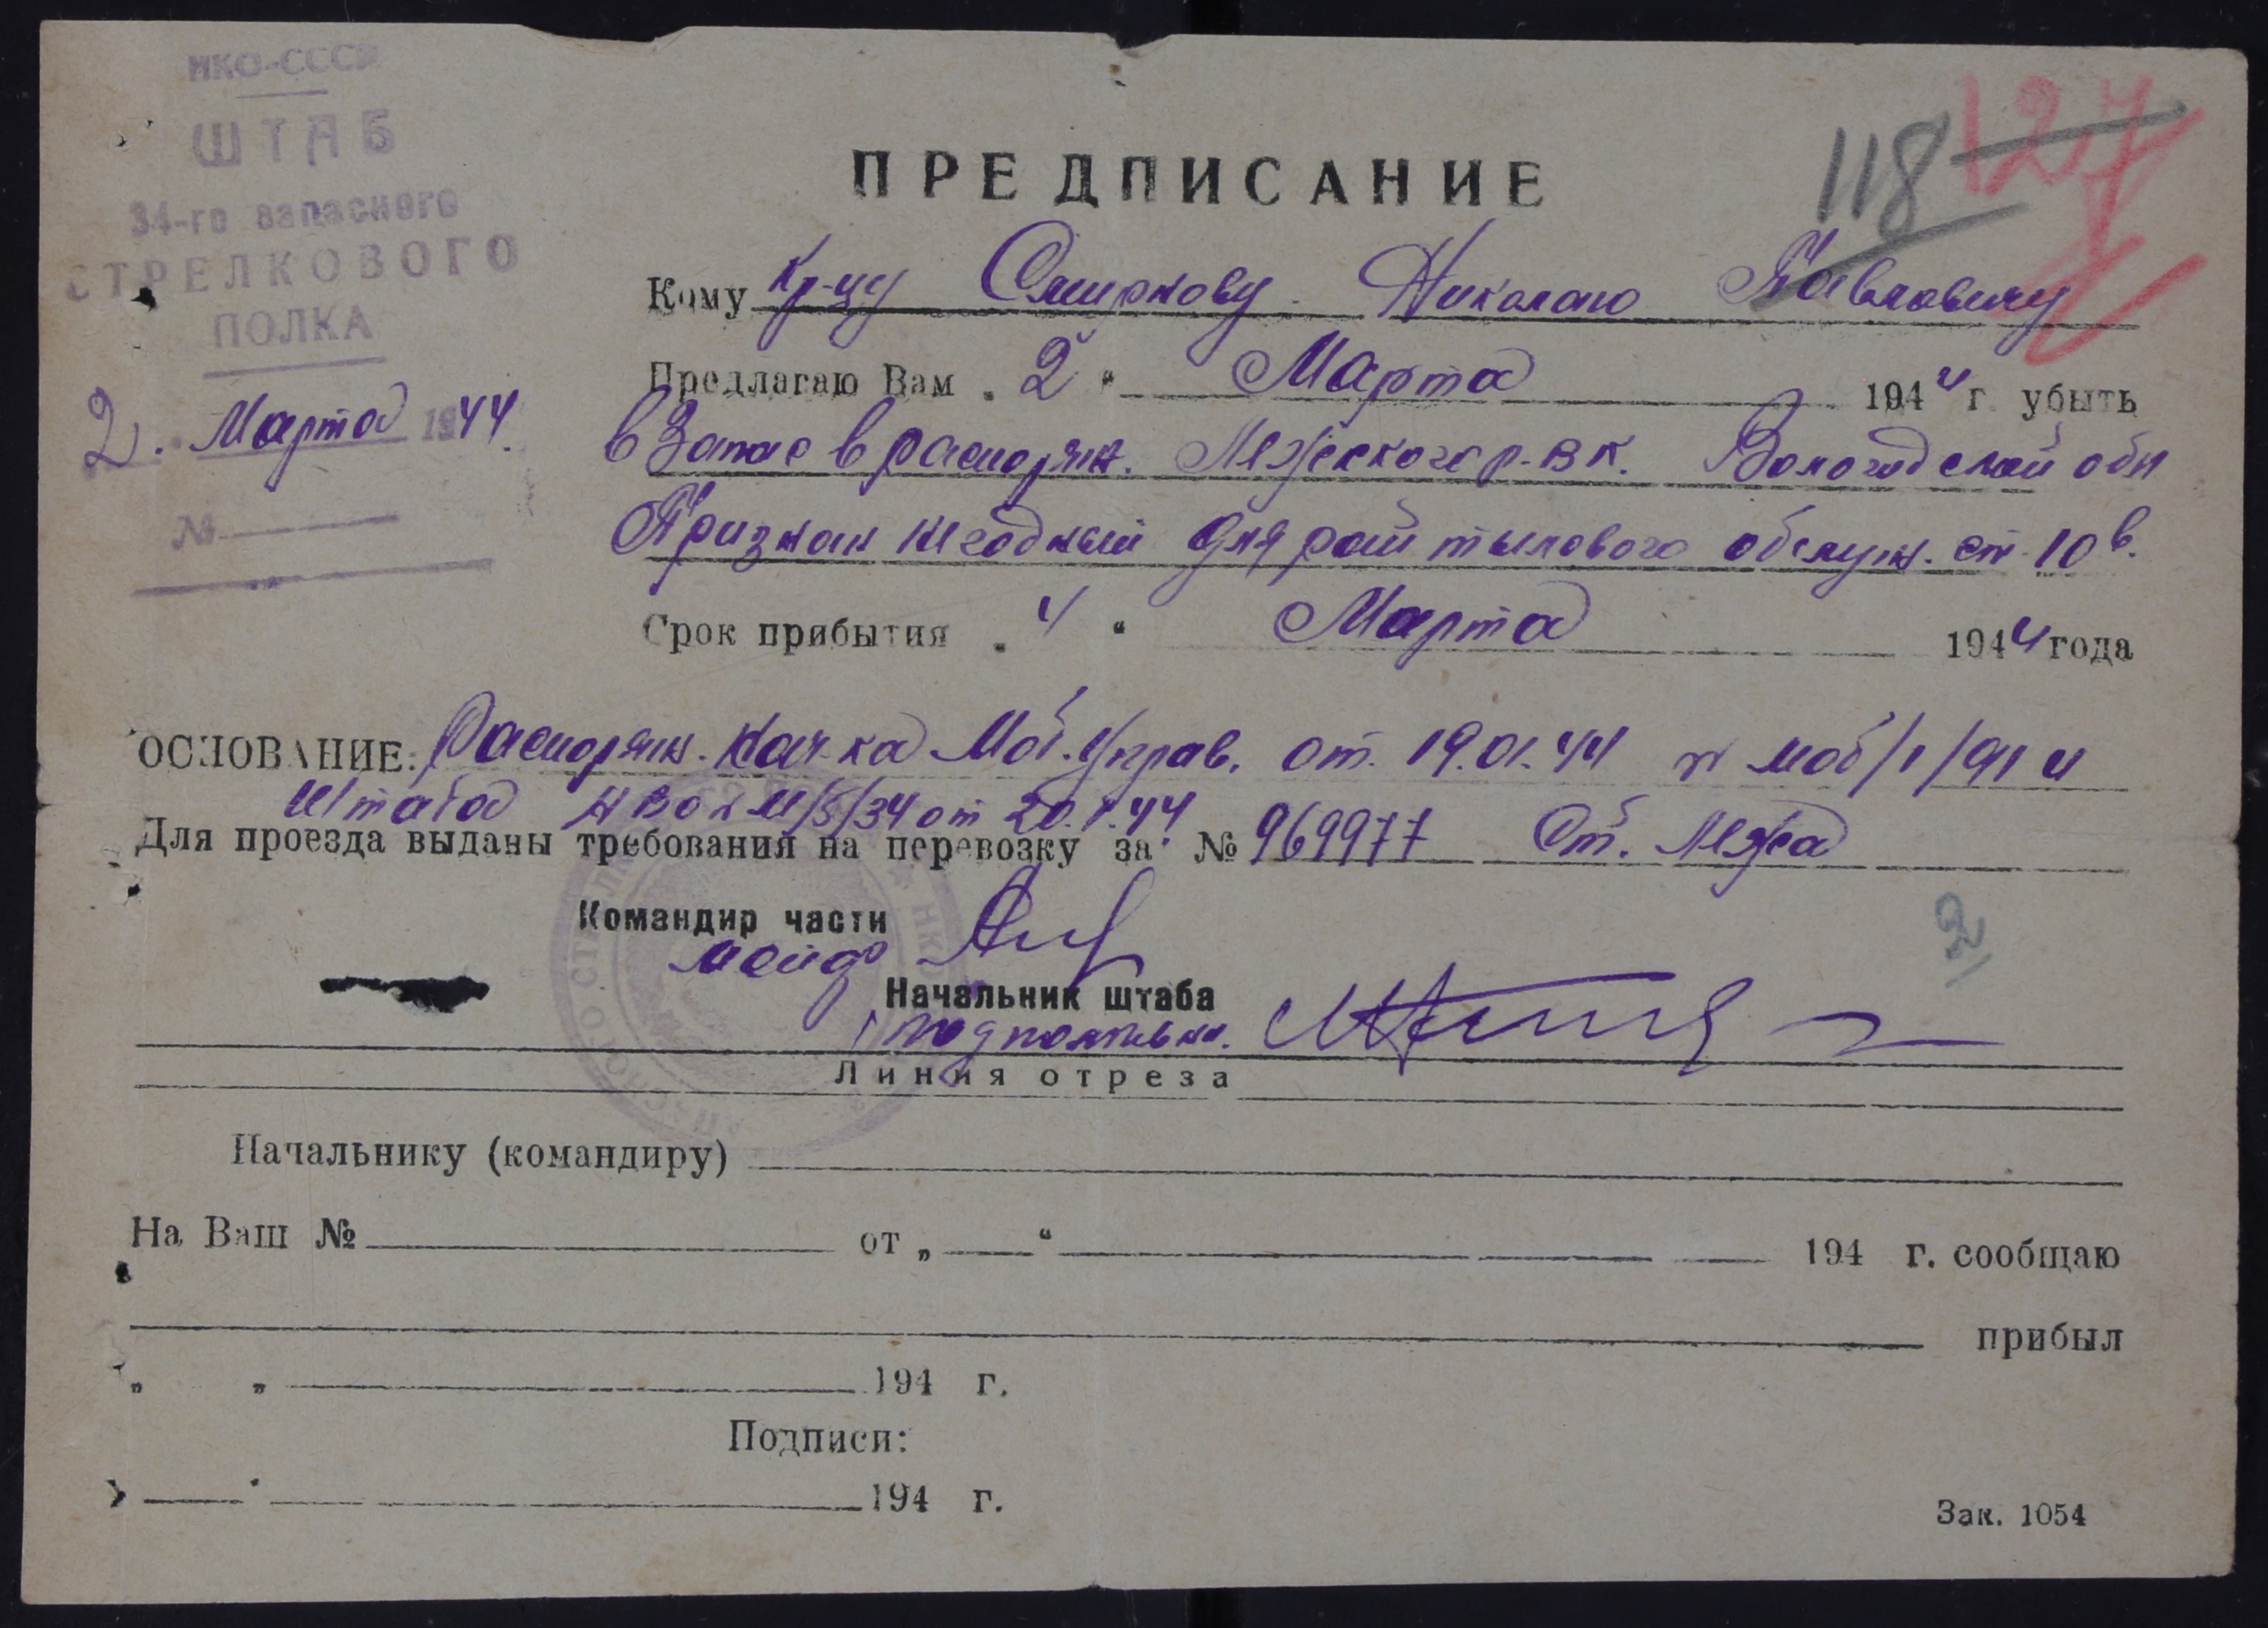 НКО-СССР
ШТАБ
34-го запасного
СТРЕЛКОВОГО
ПОЛКА
2. Марта 1944
№
118 127
ПРЕДПИСАНИЕ
Кому Кр-цу Смирнову Николаю Павловичу
Предлагаю Вам „ 2 “ Марта 1944 г. убыть
в Запас в распоряж. Межского р-вк. Вологодской обл
Признан негодный для тылового обслуж. ст 10 в.
Срок прибытия „ 4 “ Марта 1944 года
ОСНОВАНИЕ: Распоряж. Нач-ка Моб. Управ. от. 19.01.44 № моб/1/91 и
Штаба М/5/34 от 20.1.44
Для проезда выданы требования на перевозку за № 969977 Ст. Межа
Командир части
майор
2
Начальник штаба
Линия отреза
Начальнику (командиру)
На Ваш № от „ “ 194 г. сообщаю
прибыл
„ „ 194 г.
Подписи:
194 г.
Зак. 1054